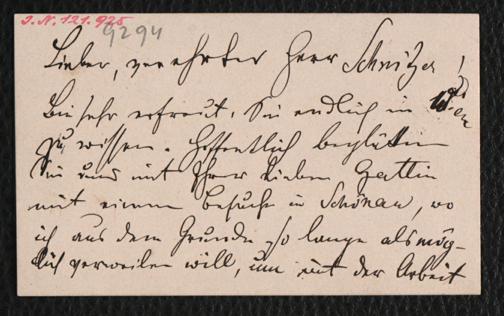 J. N. 121.925
9294
Lieber, verehrter Herr Schnitzer!
Bin sehr erfreut, Sie endlich in Wien
zu wissen. Hoffentlich beglücken
Sie uns mit Ihrer lieben Gattin
mit einem Besuche in Schönau, wo
ich aus dem Grunde so lange als mög-
lich verweilen will, um mit der Arbeit